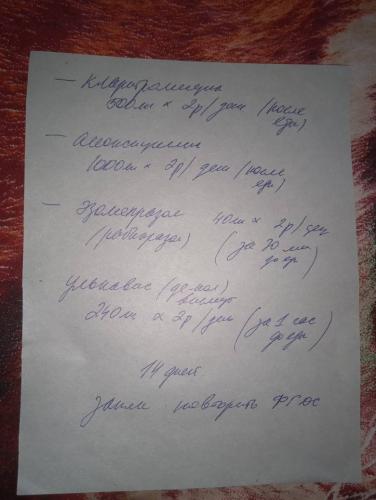 — Кларитромицин
500 мг × 2р/день (после еды)
— Амоксициллин
1000 мг × 2р/день (после еды)
— Эзомепразол 40 мг × 2р/день
(рабепразол) (за 30 мин до еды)
Улькавис (денол)
висмут
240 мг × 2р/день (за 1 час до еды)
14 дней
Затем повторить ФГДС